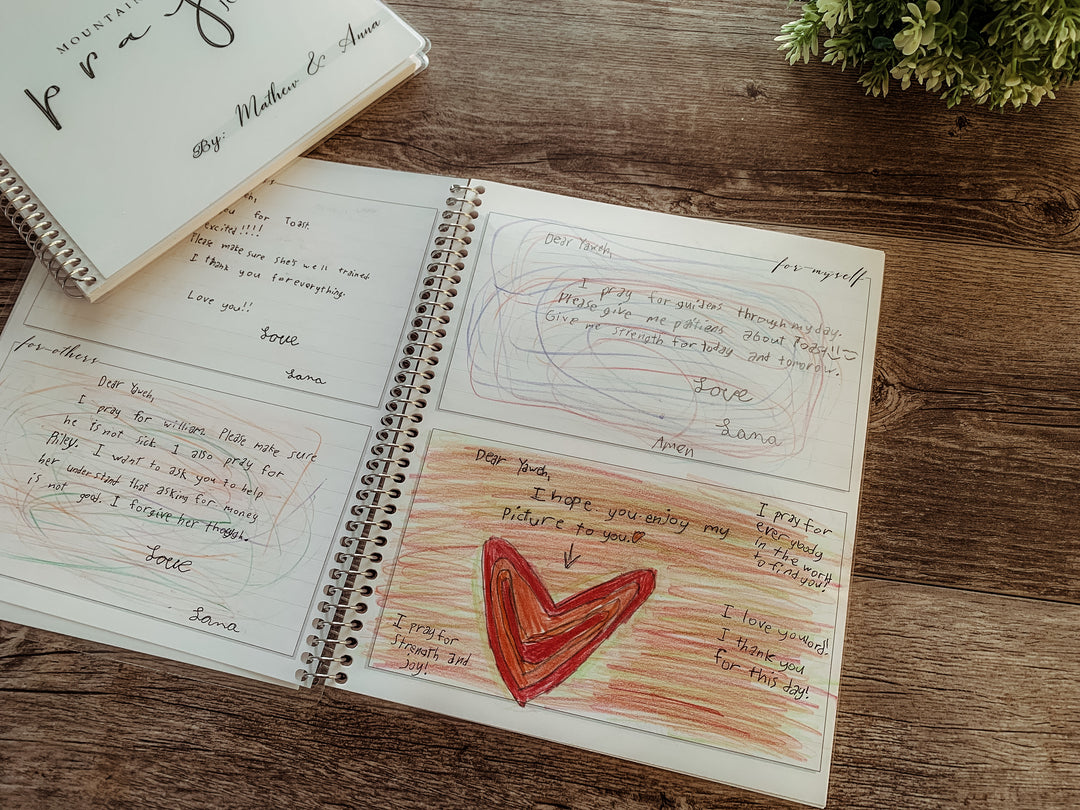 MOUNTAIN
pra
By: Mathew & Anna
you for Toast
excited!!!!
Please make sure she's well trained
I thank you foreverything.
Love you!!
Love
Lana
for others
Dear Yaweh,
I pray for william. Please make sure
he is not sick. I also pray for
Riley. I want to ask you to help
her understand that asking for money
is not good. I forgive her though.
Love
Lana
for myself
Dear Yaweh,
I pray for guidens through my day.
Please give me patiens about Toast!!
Give me strength for today and tomorow.
Love
Lana
Amen
Dear Yaweh,
I hope you enjoy my
Picture to you.
I pray for
everybody
in the world
to find you!
I pray for
strength and
Joy!
I love you lord!
I thank you
for this day!